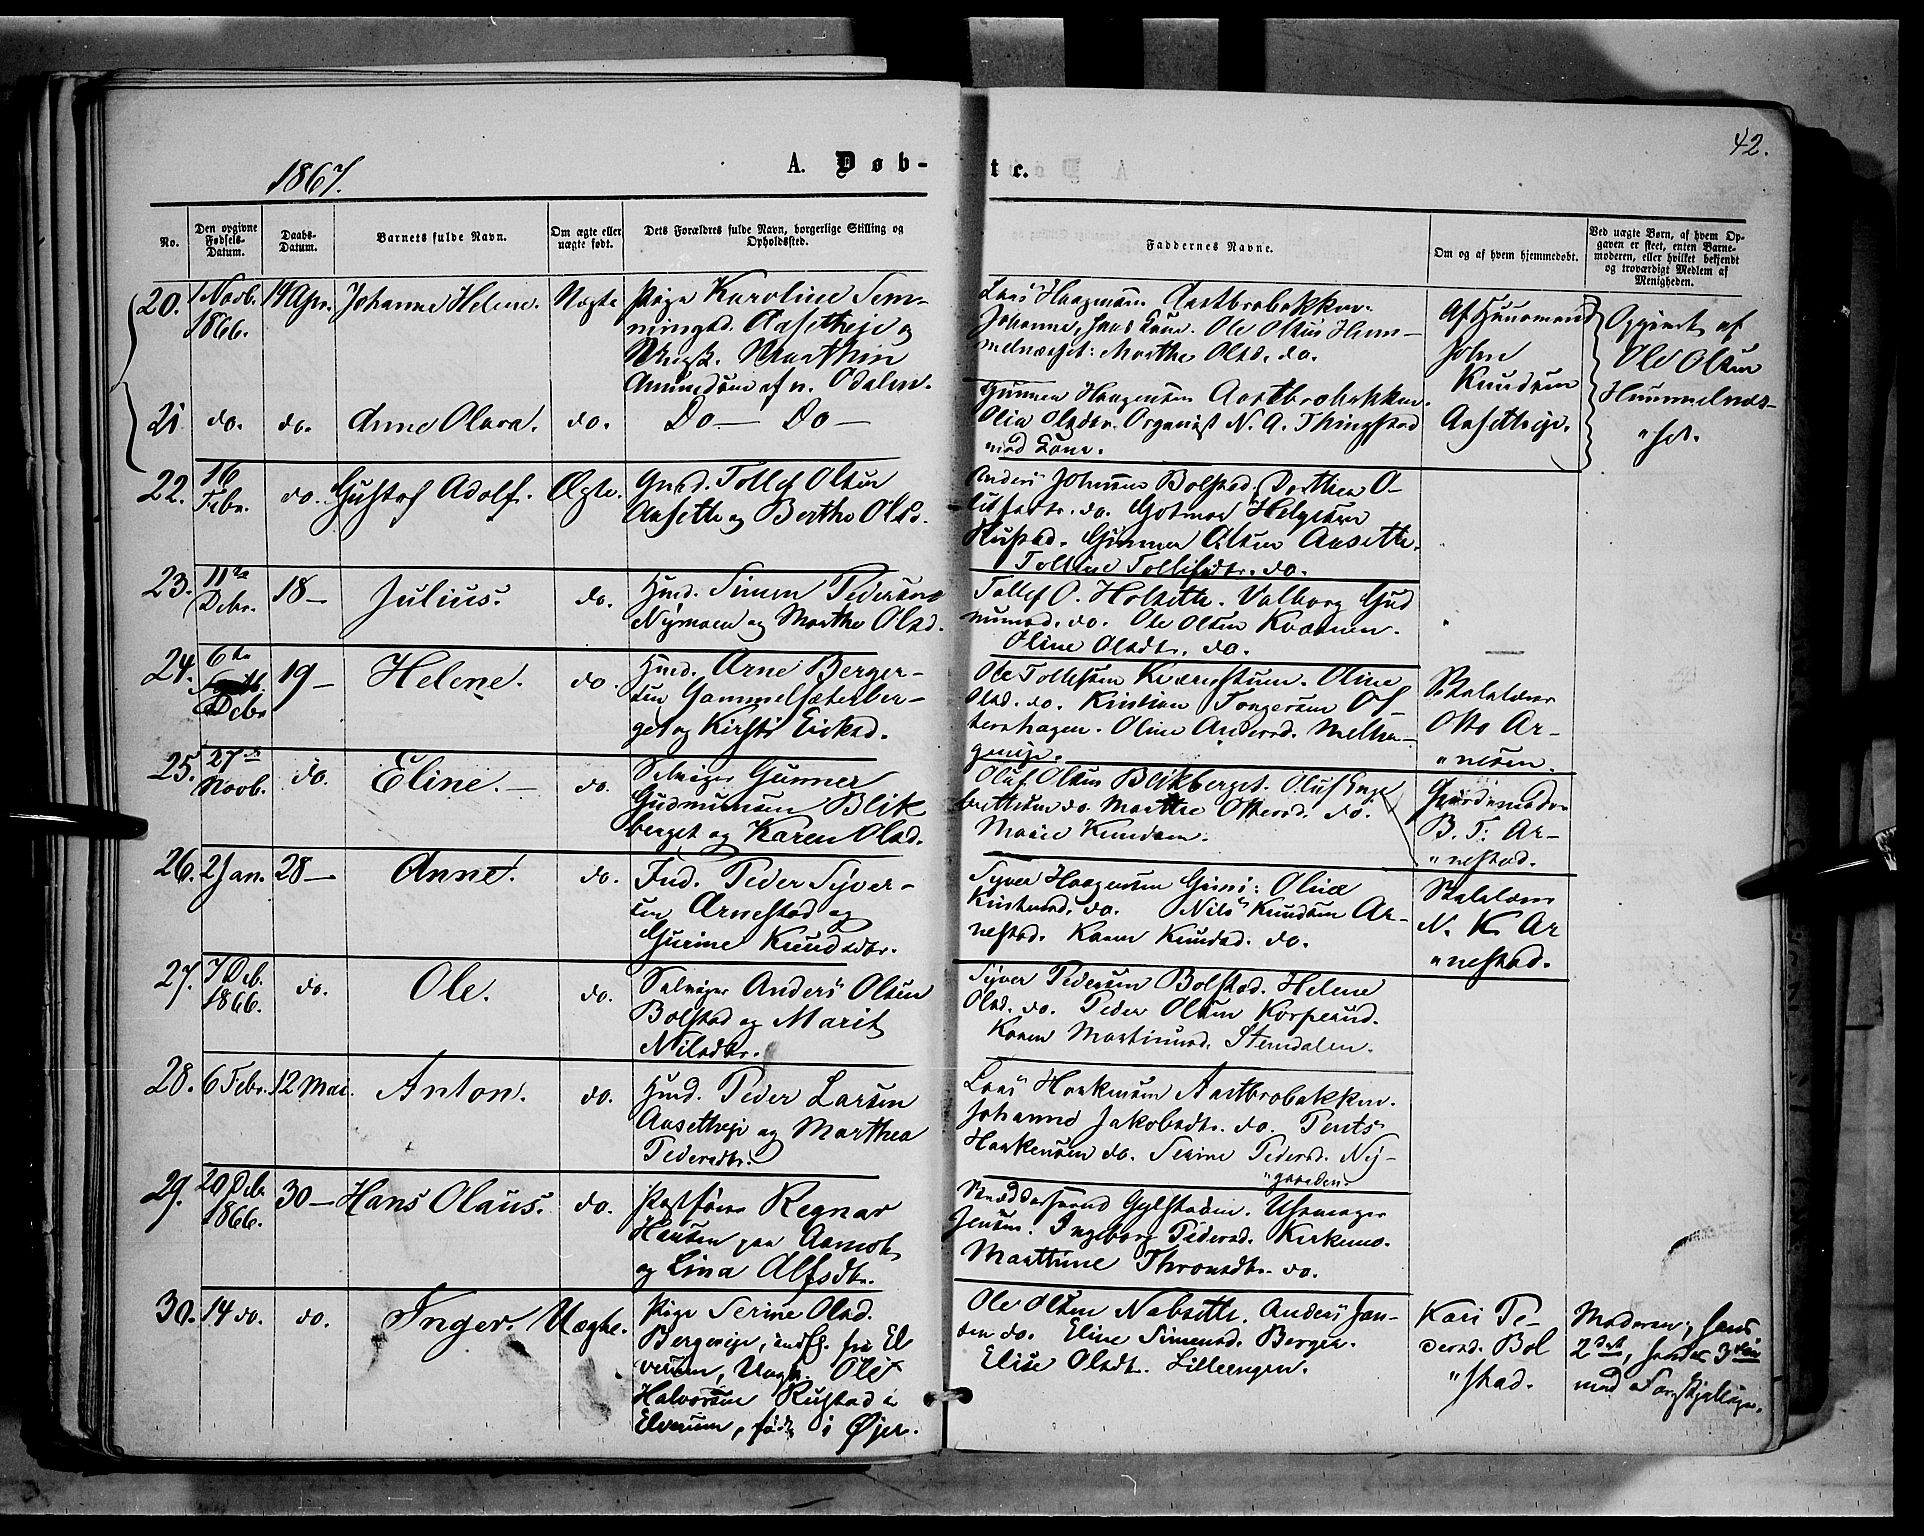 42.
1867.
A. Døb-
te.
No.
Den opgivne Fødsels-Datum.
Daabs-Datum.
Barnets fulde Navn.
Om ægte eller uægte født.
Dets Forældres fulde Navn, borgerlige Stilling og Opholdssted.
Faddernes Navne.
Om og af hvem hjemmedøbt.
Ved uægte Børn, af hvem Op-
gaven er skeet, enten Barne-
moderen, eller hvilket bekjendt
og troværdigt Medlem af
Menigheden.
20. 1 Novb. 1866. 19 Apr. Johanne Helene. Uægte
Pige Karoline Sem-
mingsd. Aasetheje og
Ungk. Marthin
Amundsen af n. Odalen.
Lars Haagensen Aastbrobakken.
Johanne, hans Kone. Ole Olsen Hum-
melnæsset: Marthe Olsd. do.
Af Huusmand
John
Knudsen
Aasetheje.
Opgivet af
Ole Olsen
Hummelnæs-
"set.
21. do. do. Anne Olava. do. Do — Do —
Gunner Haagensen Aastbrobakken.
Olia Olsdtr. Organist N. A. Thingstad
med Kone.
22. 16 Febr. do. Gustaf Adolf. Ægte.
Gmd. Tollef Olsen
Aasethe og Berthe Olsd.
Anders Johnsen Bolstad. Dorthea O-
do. Helgesen
Gunner Olsen Aasethe.
Tolline Tollefsdtr. do.
23. 11te Debr. 18 — Julius. do.
Hmd. Simen Pedersen
Nymoen og Marthe Olsd.
Tollef O. Holsethe. Valborg Gud
munsd. do. Ole Olsen Kværnen.
Oline Olsdtr. do.
24. 6te Debr 19 — Helene. do.
Hmd. Arne Berger-
sen Gammelsæterber-
get og Kirsti Eriksd.
Ole Tollefsen Kværnstuen. Oline
Olsd. do. Kristian
Oline Andersd.
Skolelærer
Otto Ar-
"nesen.
25. 27de Novb. do. Eline. — do.
Selveier Gunner
Gudmunsen Blik
berget og Karen Olsd.
Oluf Olsen Blikberget. Oluf Enge
bretsen do. Marthe Ottersd. do.
Marie Knudsen.
Gjordemoder
B. T. Ar-
"nestad.
26. 2 Jan. 28 — Anne. do.
Ind. Peder Syver-
sen Arnestad og
Gurine Knudsdtr.
Syver Haagensen
do. Nils Knudsen Ar-
nestad. Karen Knudsd. do.
Skolelærer
N. K. Ar
"nestad.
27. 7 Deb. 1866. do. Ole. do.
Selveier Anders Olsen
Bolstad og Marit
Nilsdtr.
Syver Pedersen Bolstad. Helene
Olsd. do. Peder Olsen Korperud.
Karen Martinusd. Stemdalen.
28. 6 Febr. 12 Mai. Anton. do.
Hmd. Peder Larsen
Aasetheje og Marthea
Pedersdtr.
Lars Haakensen Aastbrobakken.
Johanne Jakobsdtr. do. Pents
Haakensen do. Serine Pedersd. Ny-
"gaarden.
29. 20 Deb. 1866. 30 — Hans Olaus. do.
Postfører Regnar
Hansen paa Aamot
og Lina Alfsdtr.
Gylstrøm. Uhrmager
Jensen. Ingeborg Pedersd. Kirkemo.
Marthine Thronsdtr. do.
30. 14 do. do. Inger. Uægte.
Pige Serine Olsd.
Bergereje, indfl. fra El
verum, Ungk. Ole
Halvorsen Rustad i
Elverum, født i Øjer.
Ole Olsen Nabsethe. Anders Jan-
sen do. Eline Simensd. Berger.
Elise Olsdt. Lilleengen.
Kari Pe-
dersd. Bol
"stad.
Moderen; hans
2det, hendes 3die
med